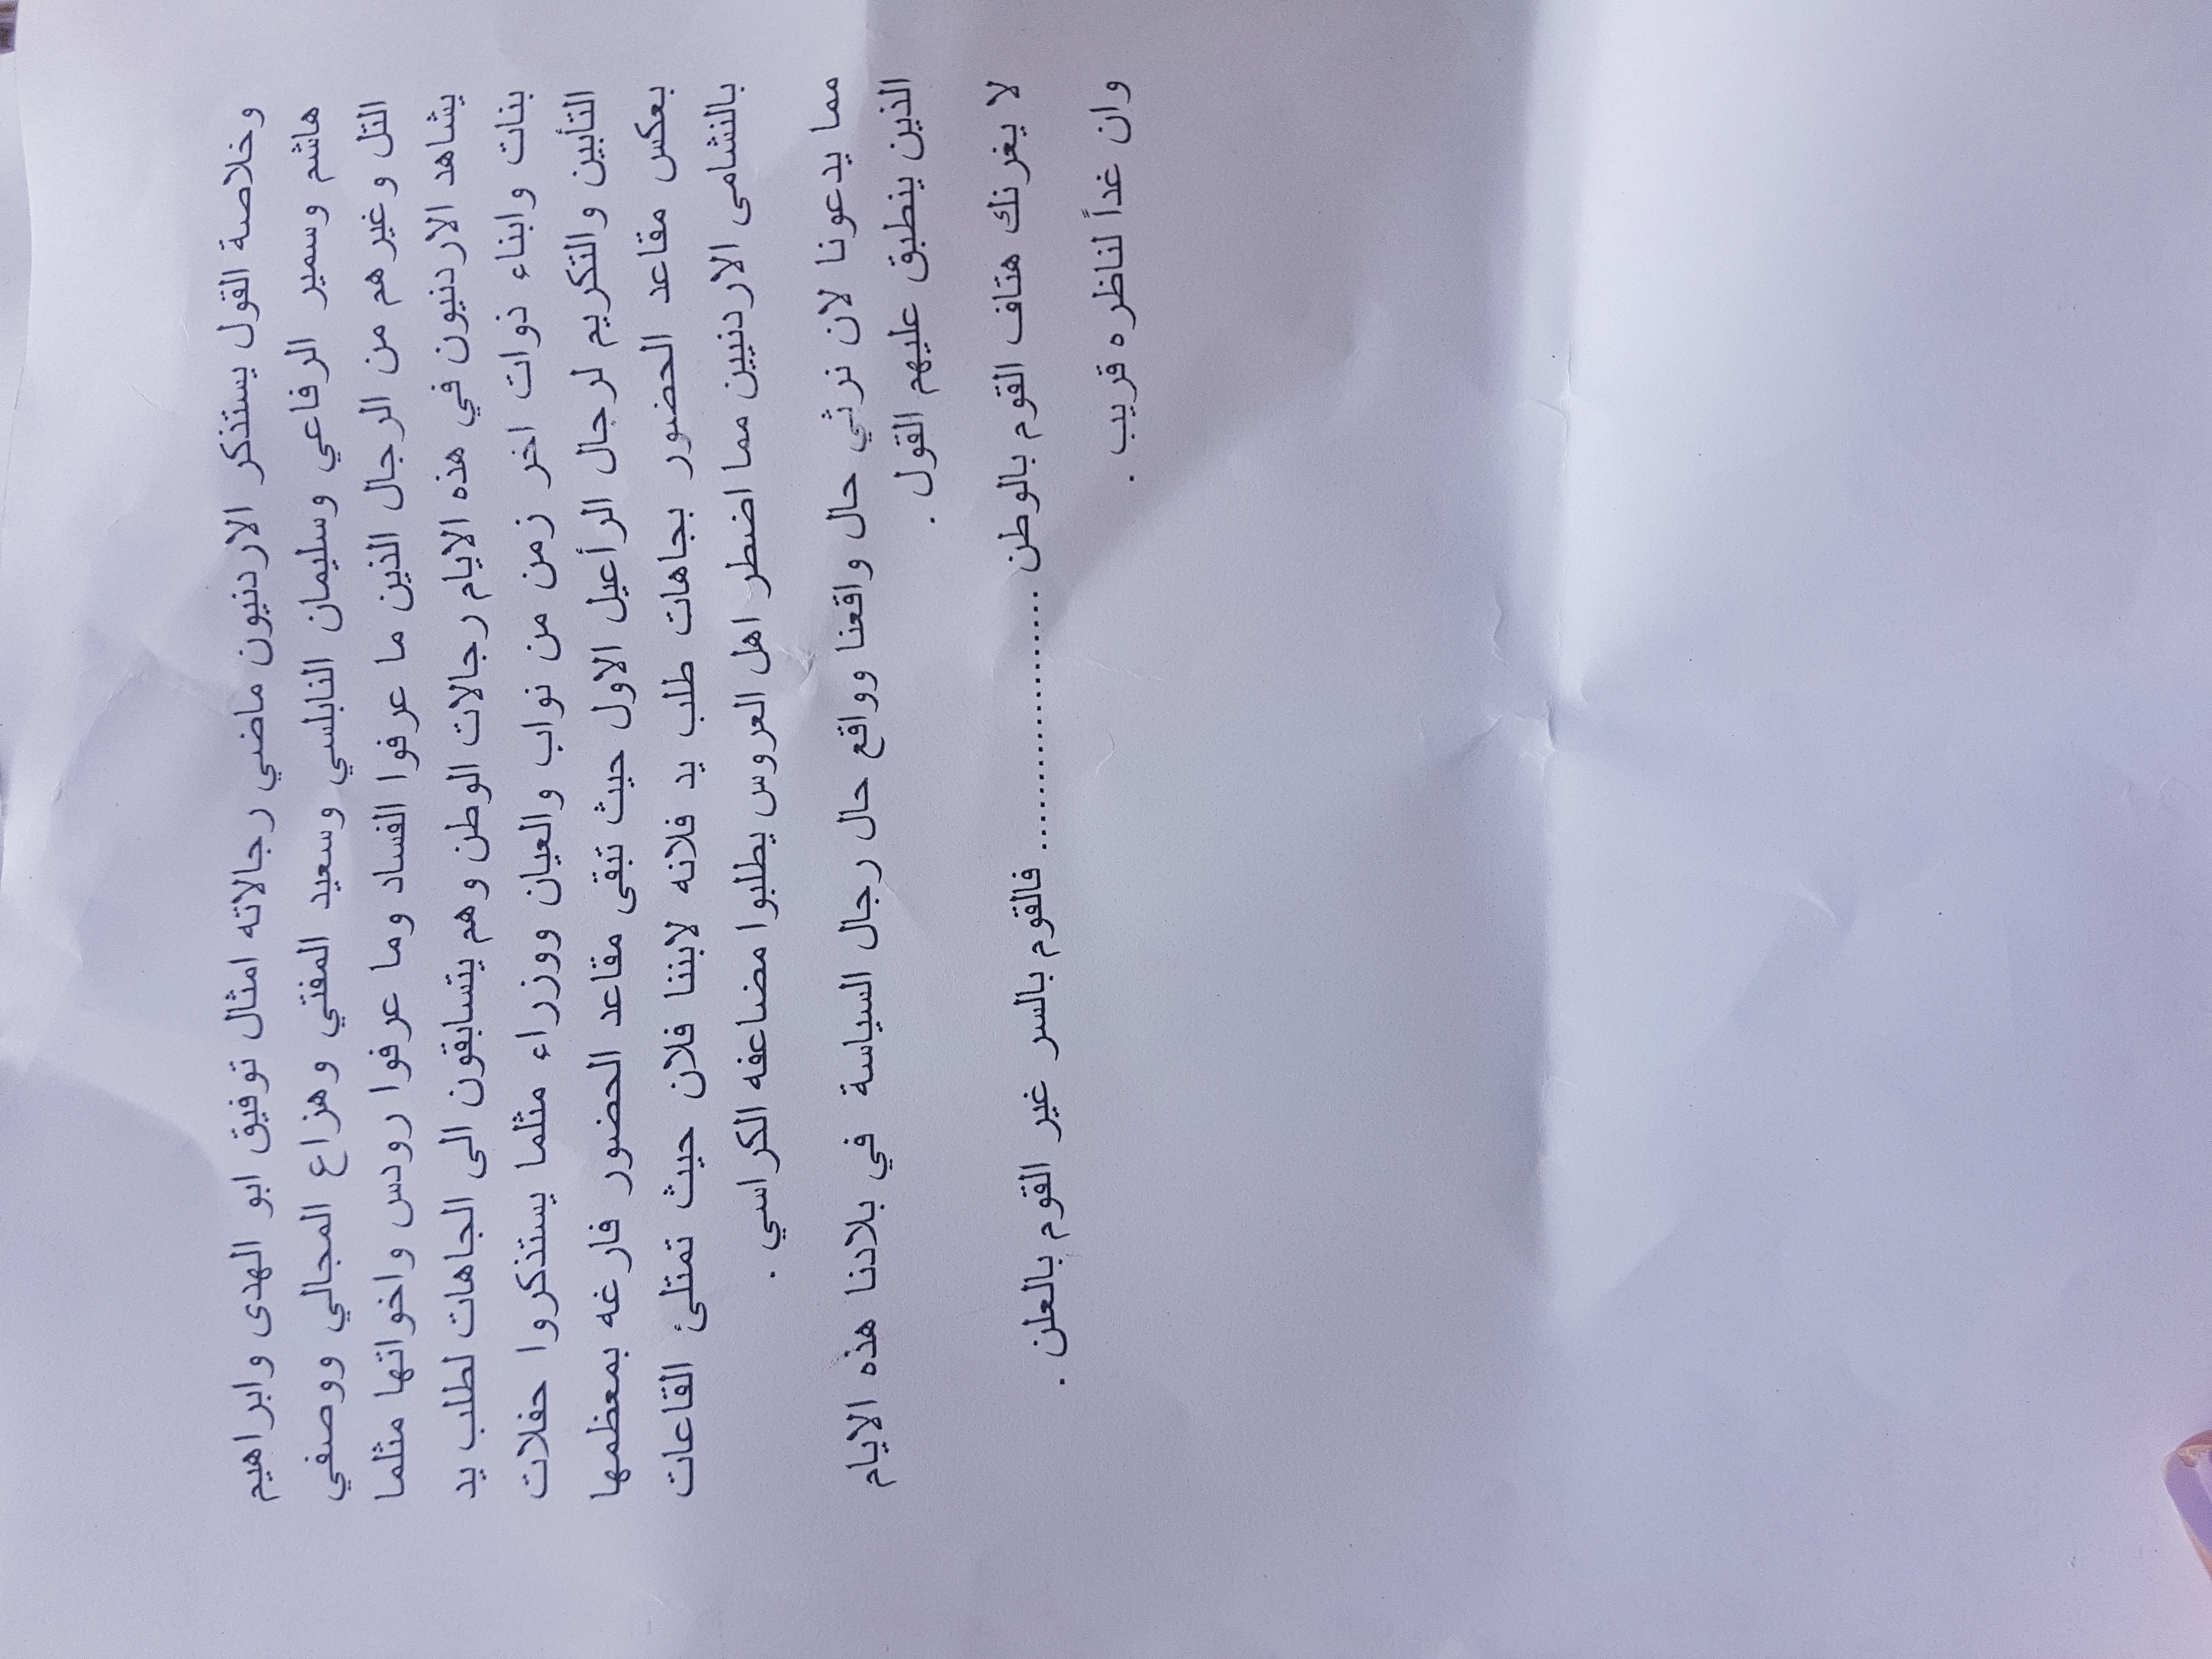 وخلاصة القول يستذكر الاردنيون ماضي رجالاته امثال توفيق ابو الهدى وابراهيم
هاشم وسمير الرفاعي وسليمان النابلسي وسعيد المفتي وهزاع المجالي ووصفي
التل وغيرهم من الرجال الذين ما عرفوا الفساد وما عرفوا رودس واخواتها مثلما
يشاهد الاردنيون في هذه الايام رجالات الوطن وهم يتسابقون الى الجاهات لطلب يد
بنات وابناء ذوات اخر زمن من نواب والعيان ووزراء مثلما يستذكروا حفلات
التأبين والتكريم لرجال الرأعيل الاول حيث تبقى مقاعد الحضور فارغه بمعظمها
بعكس مقاعد الحضور بجاهات طلب يد فلانه لابننا فلان حيث تمتلئ القاعات
بالنشامى الاردنيين مما اضطر اهل العروس يطلبوا مضاعفه الكراسي .
مما يدعونا لان نرثي حال واقعنا وواقع حال رجال السياسة في بلادنا هذه الايام
الذين ينطبق عليهم القول .
لا يغرنك هتاف القوم بالوطن ........................ فالقوم بالسر غير القوم بالعلن .
وان غداً لناظره قريب .